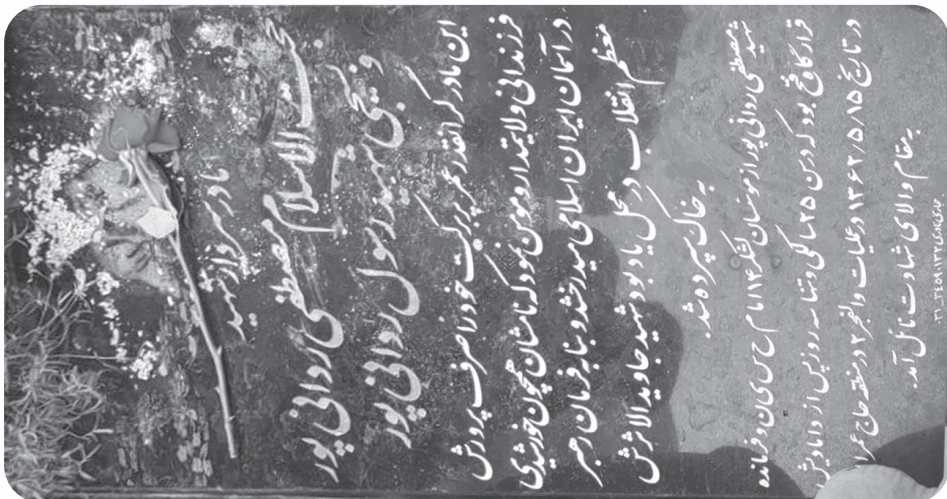 مادر سرافراز شهید
حجت الاسلام مصطفی ردانی پور
و حجتی شهید رسول ردانی پور
این مادر گرانقدر عمر پر برکت خود را صرف پرورش
فرزندانی ولایتمدار و مومن نمود که نامشان همچون خورشیدی
در آسمان ایران اسلامی میدرخشد و بنا به فرمان رهبر
معظم انقلاب در محل یادبود شهید جاوید الاثرش
به خاک سپرده شد.
شهید مصطفی ردانی پور از موسسان لشگر ۱۴ امام حسین و فرمانده
قرارگاه فتح بود که در سن ۲۵ سالگی و تنها سه روز پس از دامادیش
در تاریخ ۱۳۶۲/۵/۱۵ و عملیات والفجر ۲ در منطقه حاج عمران
به مقام والای شهادت نائل آمد.